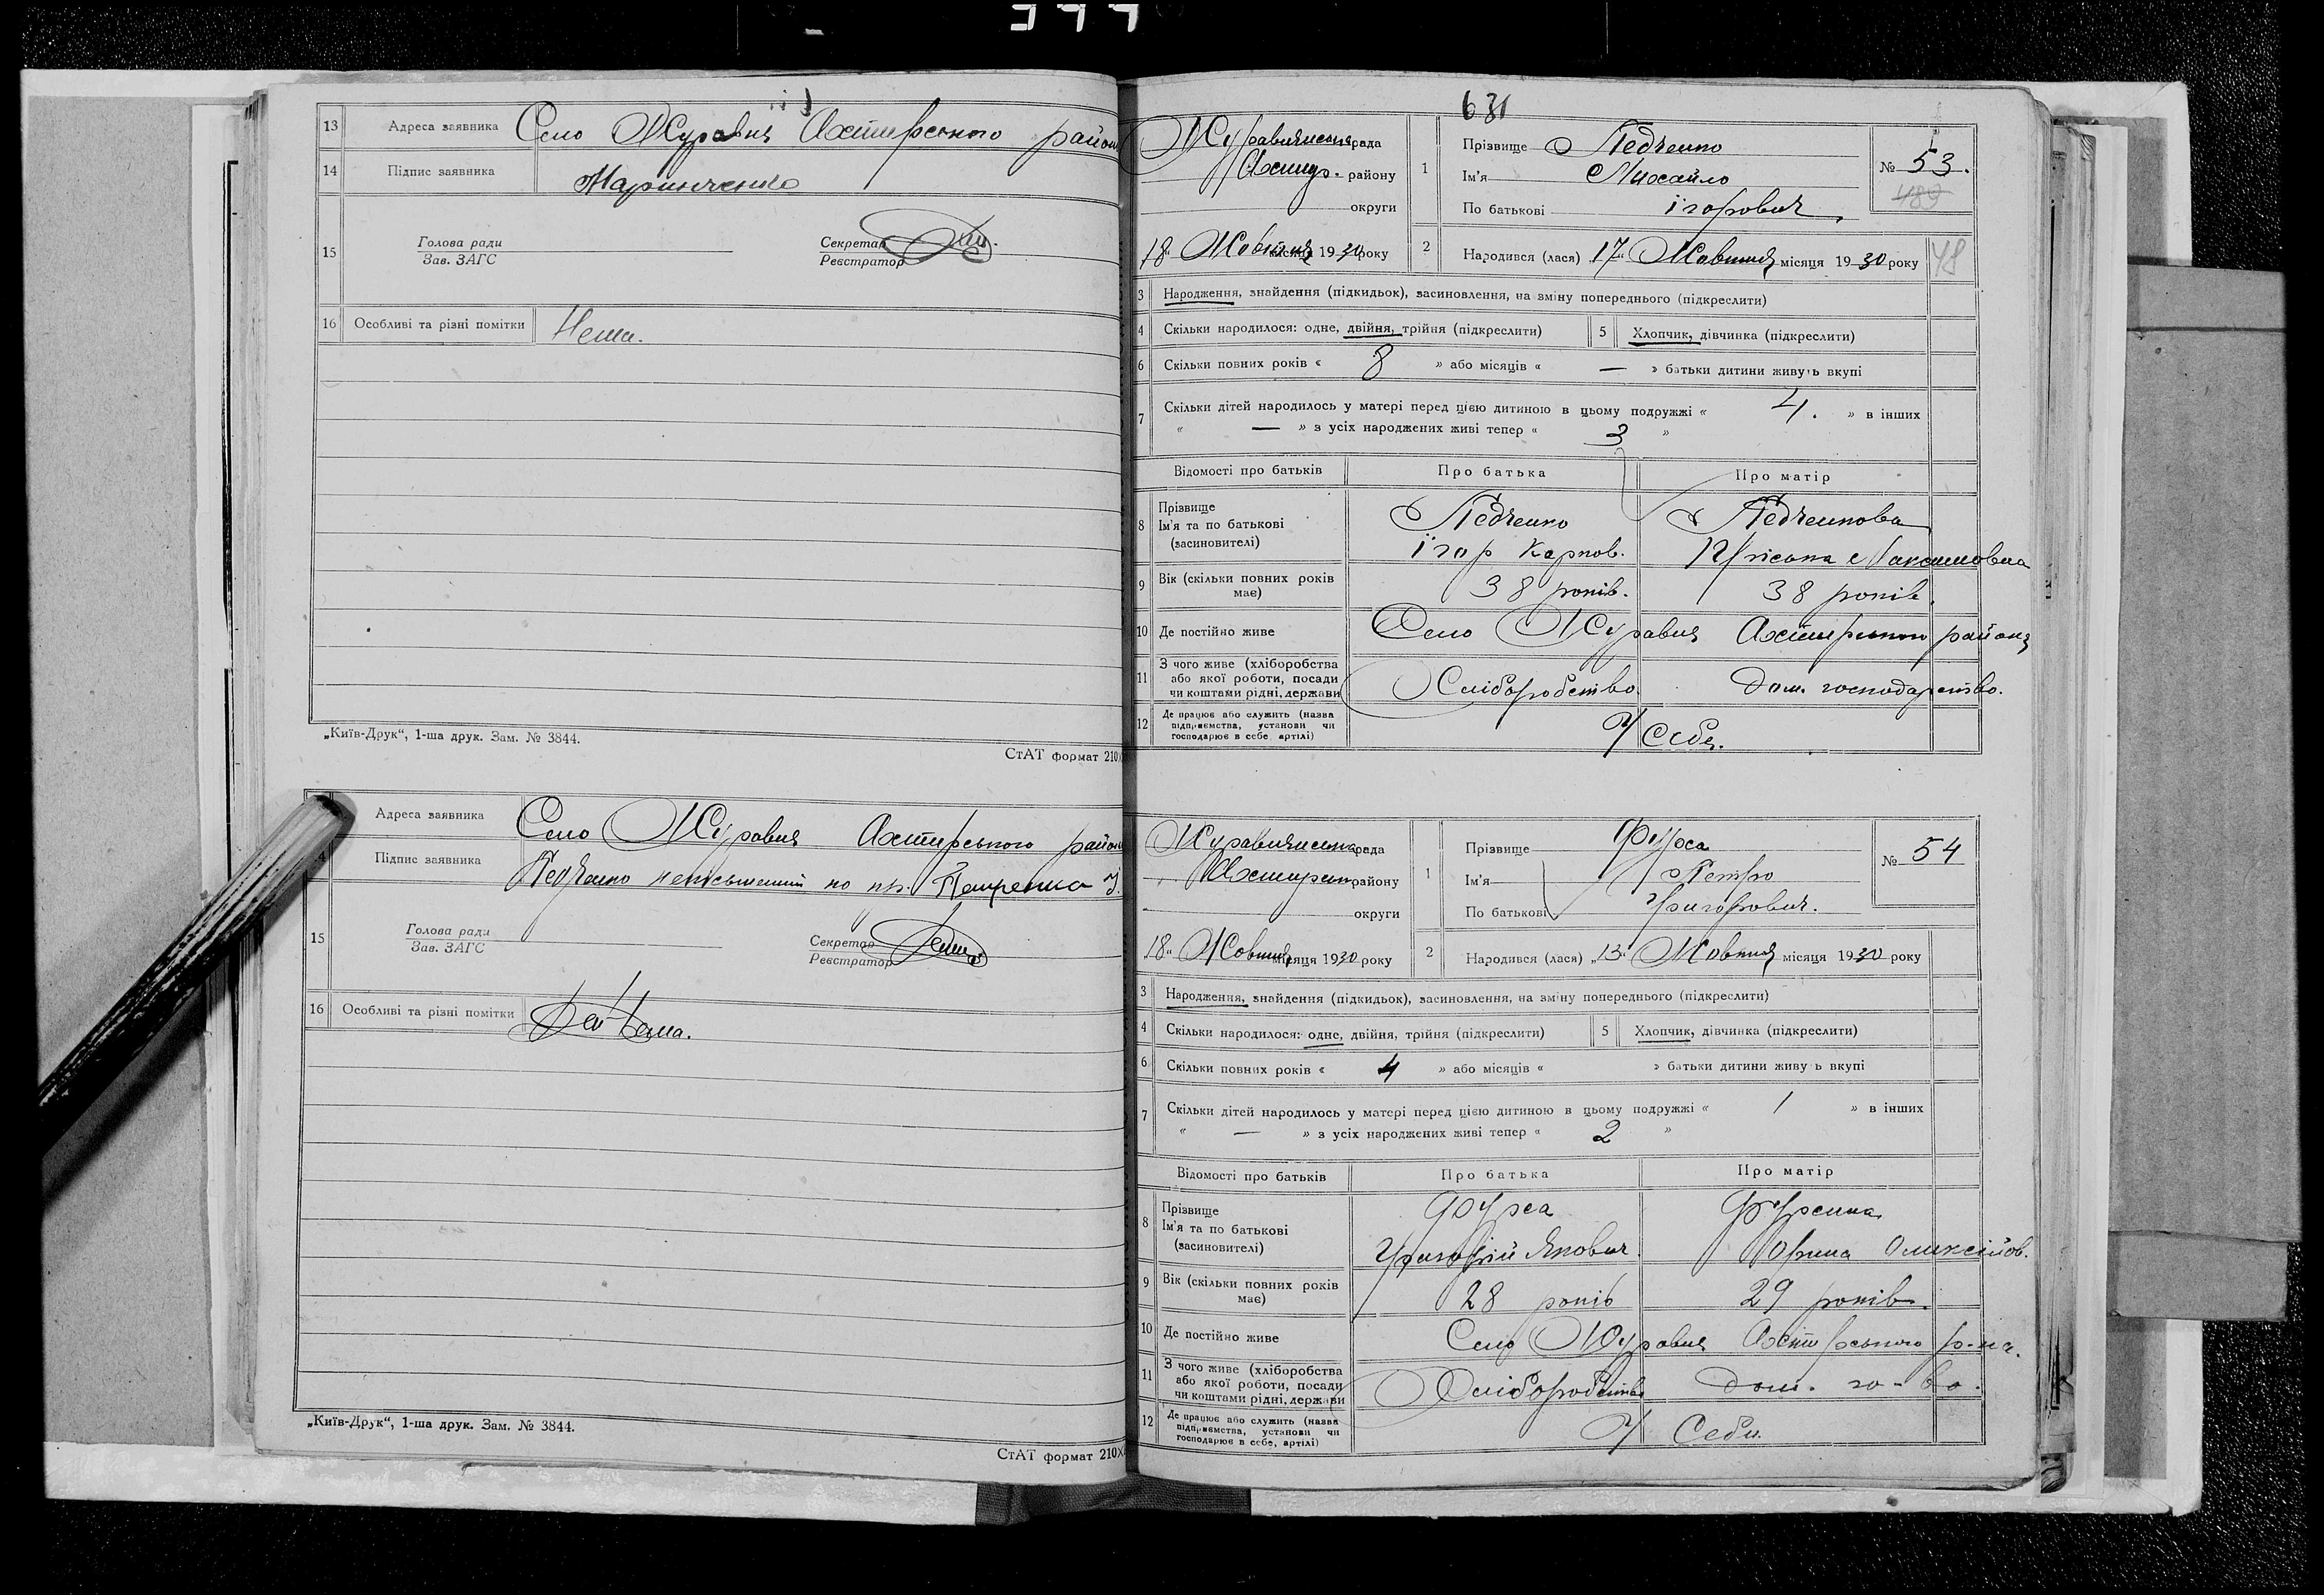 13 Адреса заявника Село Журавне Ахтирського району
14 Підпис заявника Маринченко
15 Голова ради
Зав. ЗАГС
Секретар
Реєстратор
16 Особливі та різні помітки Нема.
„Київ-Друк“, 1-ша друк. Зам. № 3844.
СтАТ формат 210
Адреса заявника Село Журавне Ахтирського району
Підпис заявника Педченко неписьменний по пр. Петренко
15 Голова ради
Зав. ЗАГС
Секретар
Реєстратор
16 Особливі та різні помітки Нема.
„Київ-Друк“, 1-ша друк. Зам. № 3844.
СтАТ формат 210
631
рада
Ахтир. району
округи
18 Жовтня місяця 1930 року
1 Прізвище Педченко
Ім'я Михайло
По батькові Ігорович
№ 53.
489
2 Народився (лася) 17 Жовтня місяця 1930 року
48
3 Народження, знайдення (підкидьок), засиновлення, на зміну попереднього (підкреслити)
4 Скільки народилося: одне, двійня, трійня (підкреслити) 5 Хлопчик, дівчинка (підкреслити)
6 Скільки повних років « 8 » або місяців « — » батьки дитини живуть вкупі
7 Скільки дітей народилось у матері перед цією дитиною в цьому подружжі « 4. » в інших
« — » з усіх народжених живі тепер « 3 »
Відомості про батьків Про батька Про матір
8 Прізвище
Ім'я та по батькові
(засиновителі)
Педченко Педченкова
Ігор Карпов. Пріська Максимовна
9 Вік (скільки повних років має) 38 років. 38 років.
10 Де постійно живе Село Журавне Ахтирського району
11 З чого живе (хліборобства
або якої роботи, посади
чи коштами рідні, держави
Хліборобство. Дом. господарство.
12 Де працює або служить (назва
підприємства, установи чи
господарює в себе, артілі)
У Себе.
рада
району
округи
18 Жовтня місяця 1930 року
1 Прізвище Фурса
Ім'я Петро
По батькові Григорович.
№ 54
2 Народився (лася) „13“ Жовтня місяця 1930 року
3 Народження, знайдення (підкидьок), засиновлення, на зміну попереднього (підкреслити)
4 Скільки народилося: одне, двійня, трійня (підкреслити) 5 Хлопчик, дівчинка (підкреслити)
6 Скільки повних років « 4 » або місяців « » батьки дитини живу ь вкупі
7 Скільки дітей народилось у матері перед цією дитиною в цьому подружжі « 1 » в інших
« — » з усіх народжених живі тепер « 2 »
Відомості про батьків Про батька Про матір
8 Прізвище
Ім'я та по батькові
(засиновителі)
Фурса Фурсина
Григорій Якович. Орина Оликсійов.
9 Вік (скільки повних років має) 28 років 29 років.
10 Де постійно живе Село Журавне Ахтирського р-на.
11 З чого живе (хліборобства
або якої роботи, посади
чи коштами рідні, держави
Хліборобство Дом. го-во.
12 Де працює або служить (назва
підприємства, установи чи
господарює в себе, артілі)
У Себе.